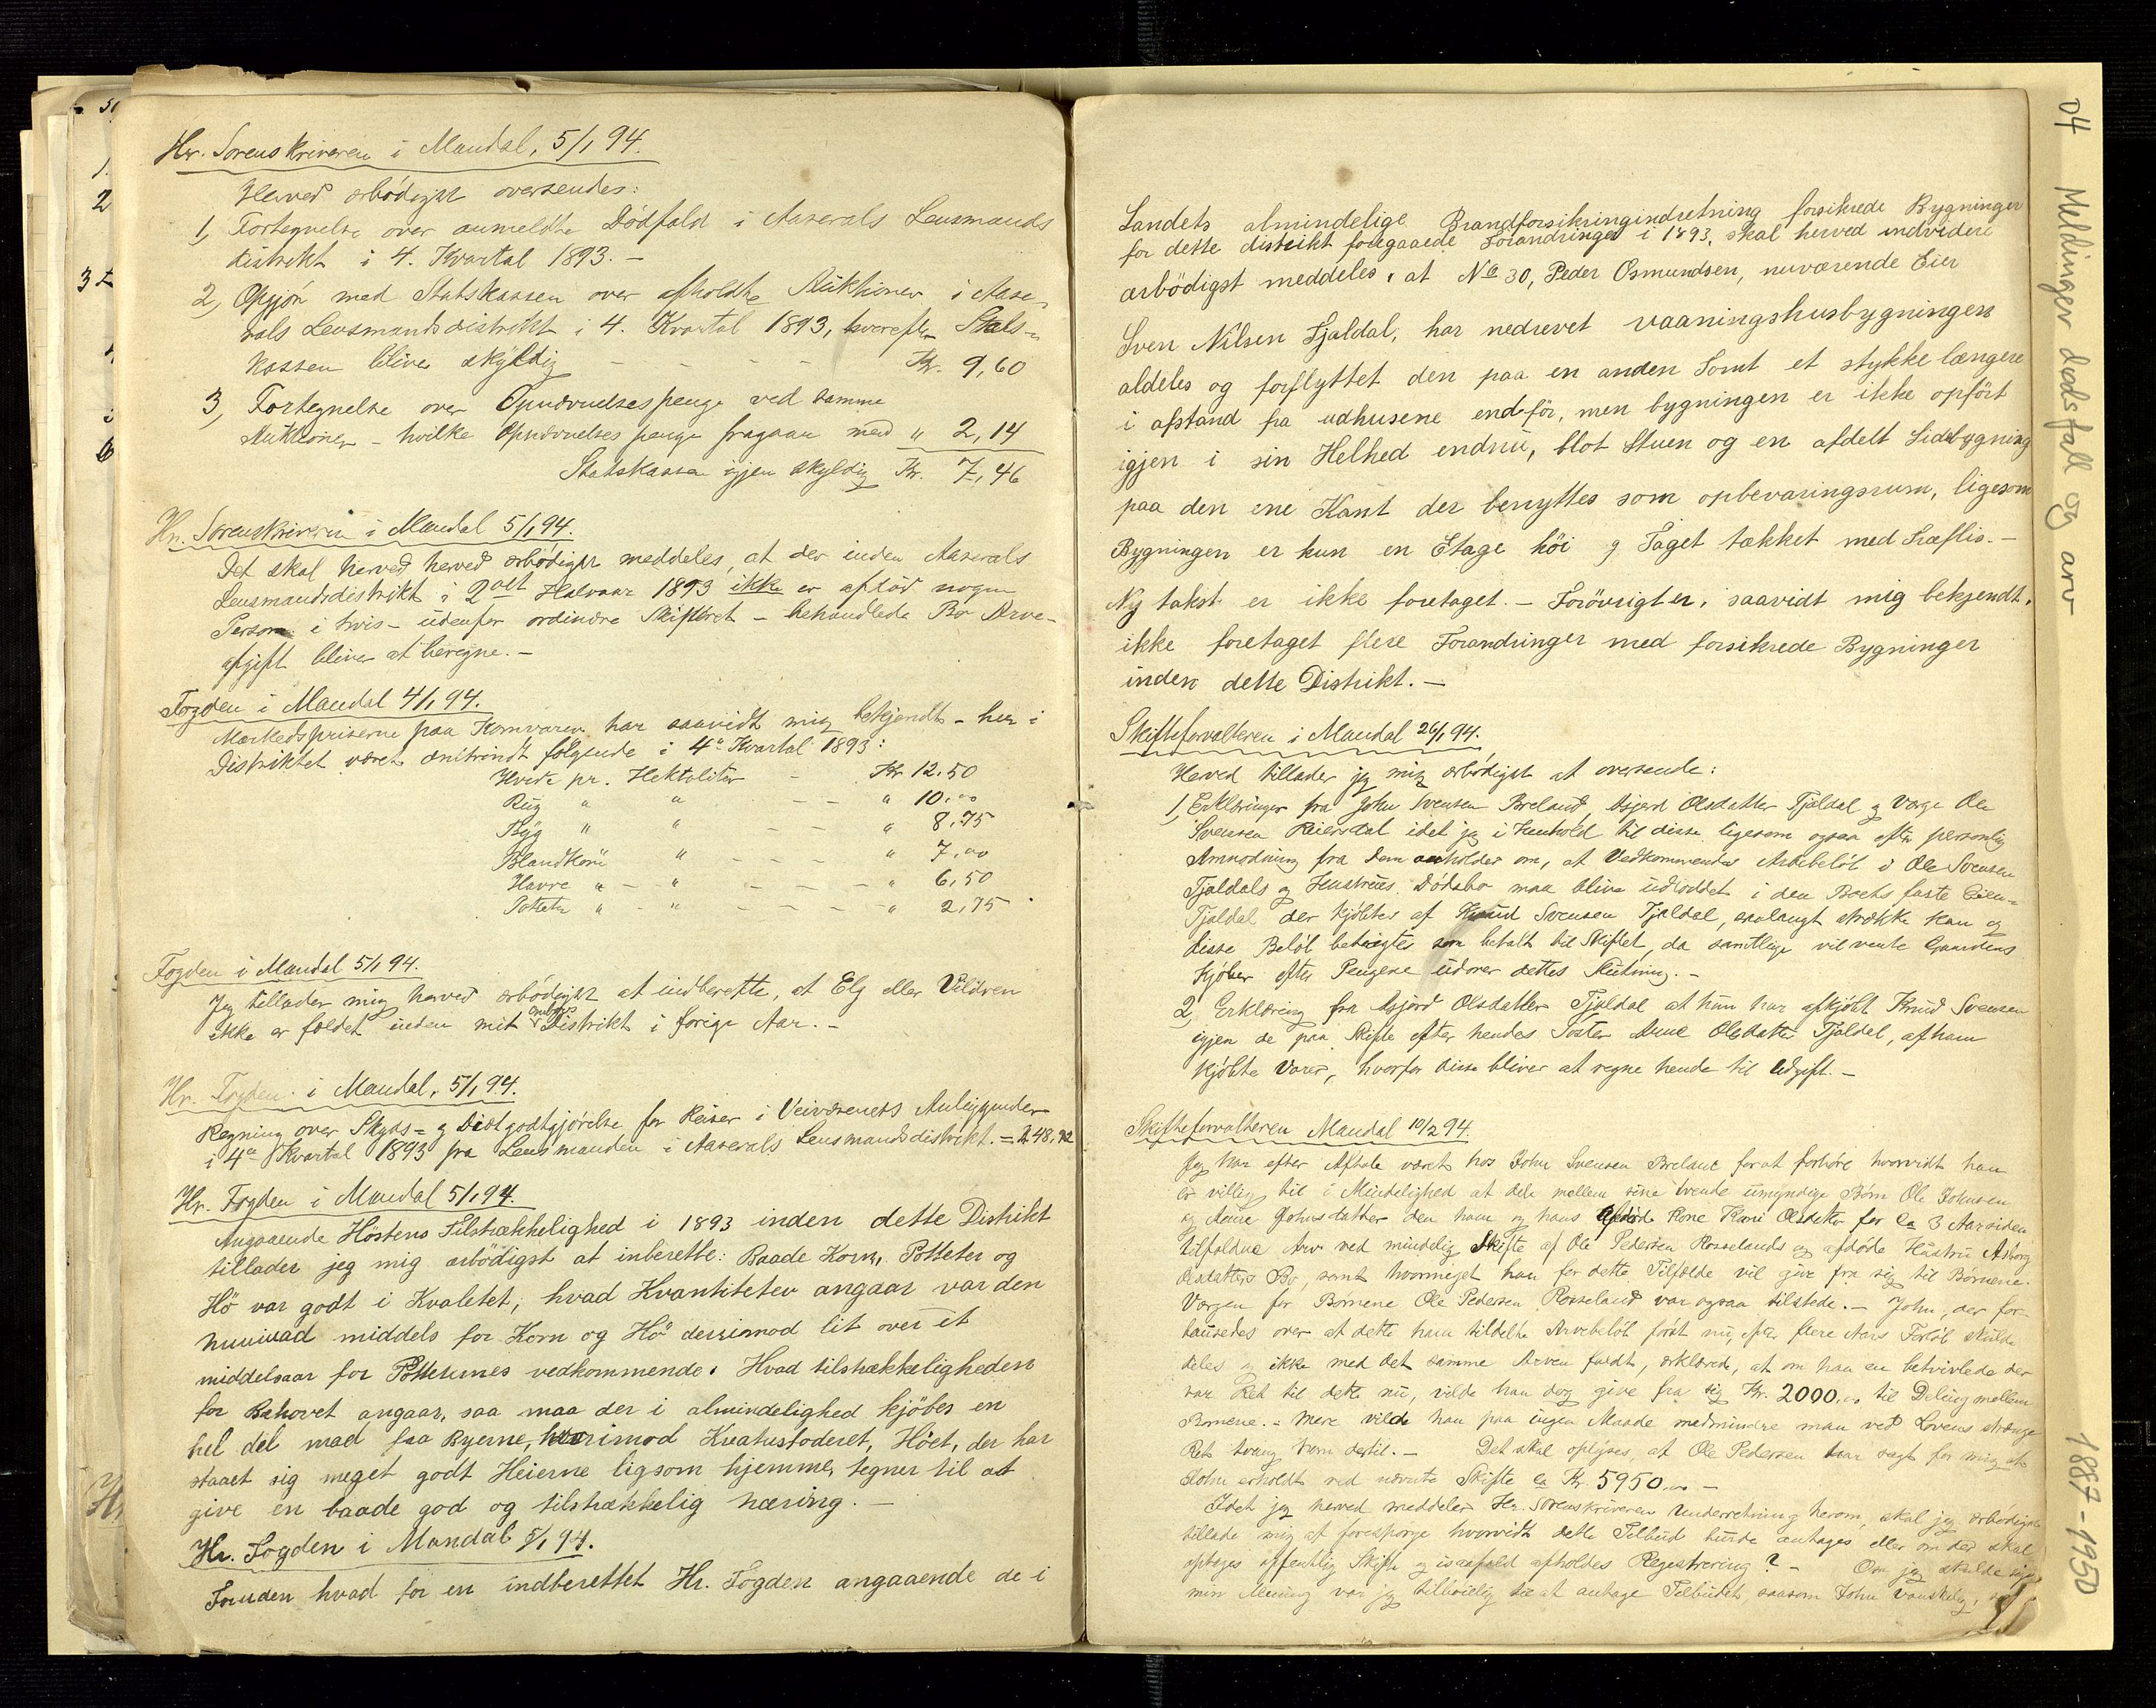 Hr. Sorenskriveren i Mandal, 5/1 94.
Herved ærbödigst oversendes:
1, Fortegnelse over anmeldte Dödsfald i Aaserals Lensmands
distrikt i 4. Kvartal 1893. –
2, Opgjör med Statskassen over afholdte Auktioner i Aase-
rals Lensmandsdistrikt i 4. Kvartal 1893, hvorefter Stats-
kassen bliver skyldig – – – Kr. 9,60
3, Fortegnelse over Opnævnelsespenge ved samme
Auktioner – hvilke Opnævnelsespenge fragaar med " 2,14
Statskassen igjen skyldig Kr. 7,46
Hr. Sorenskriveren i Mandal 5/1 94.
Det skal herved herved ærbödigst meddeles, at der inden Aaserals
Lensmandsdistrikt i 2det Halvaar 1893 ikke er afdöd nogen
Person i hvis – udenfor ordinære Skifteret – behandlede Bo Arve-
afgift bliver at beregne. –
Fogden i Mandal 4/1 94.
Markedspriserne paa Kornvaren har saavidt mig bekjendt – her i
Distriktet været omtrendt fölgende i 4de Kvartal 1893:
Hvede pr. Hektoliter – Kr 12.50
Rug " " – – – " 10.00
Byg " " – – " 8.75
Blandkorn " – – – – " 7.00
Havre " – " – – – – " 6,50
Poteter " – " – – – – " 2,75
Fogden i Mandal 5/1 94.
Jeg tillader mig herved ærbödigst at indberette, at Elg eller Vildren
ikke er fældet inden mit Distrikt i forige Aar. –
Hr. Fogden i Mandal, 5/1 94.
Regning over Skyds= og Diætgodtgjörelse for Reiser i Veivæsenets Anliggender
i 4de Kvartal 1893 fra Lensmanden i Aaserals Lensmandsdistrikt. = 48,92
Hr. Fogden i Mandal 5/1 94.
Angaaende Höstens Tilstrækkelighed i 1893 inden dette Distrikt
tillader jeg mig ærbödigst at inberette: Baade Korn, Potteter og
Hö var godt i Kvaletet, hvad Kvantiteten angaar var den
middels for Korn og Hö derimod lit over et
middelsaar for Potteternes vedkommende. Hvad tilstrækkeligheden
for Behovet angaar, saa maa der i almindelighed kjöbes en
hel del mad fra Byerne, hvorimod Kreaturfoderet, Höet, der har
staaet sig meget godt Heierne ligsom hjemme, tegner til at
give en baade god og tilstrækkelig næring. –
Hr. Fogden i Mandal 5/1 94.
Foruden hvad för en indberettet Hr. Fogden angaaende de i
Landets almindelige Brandforsikringindretning forsikrede Bygninger
for dette distrikt foregaaede Forandringer i 1893, skal herved indvidere
ærbödigst meddeles, at No 30, Peder Osmundsen, nuværende Eier
Sven Nilsen Fjaldal, har nedrevet vaaningshusbygningen
aldeles og forflyttet den paa en anden Tomt et stykke længere
i afstand fra udhusene end för, men bygningen er ikke opfört
igjen i sin Helhed endnu, blot Stuen og en afdelt Sidebygning
paa den ene Kant der benyttes som opbevaringsrum, ligesom
Bygningen er kun en Etage höi og Taget tækket med Træflis. –
Ny takst er ikke foretaget. – Forövrigt er, saavidt mig bekjendt,
ikke foretaget flere Forandringer med forsikrede Bygninger
inden dette Distrikt. –
Skifteforvalteren i Mandal 26/1 94.
Herved tillader jeg mig ærbödigst at oversende:
1, Erklæringer fra John Svensen Breland, Asjerd Olsdatter Fjaldal og Værge Ole
Svensen Reiersdal idet jeg i Henhold til disse ligesom ogsaa efter personlig
Anmodning fra dem anholder om, at Vedkommendes Arvebelöb i Ole Svensen
Fjaldals og Hustrues Dödsbo maa blive udloddet i den Boets faste Eien=
Fjaldal der kjöbtes af Knud Svensen Fjaldal, saalangt række kan og
disse Belöb betragtes som betalt til Skiftet, da samtlige vil vente Gaardens
kjöber efter Pengene udover dettes Slutning. –
2, Erklæring fra Asjerd Olsdatter Fjaldal at hun har afkjöbt Knud Svensen
igjen de paa Skifte efter hendes Söster Anne Olsdatter Fjaldal, af ham
kjöbte Varer, hvorfor disse bliver at regne hende til Udgift. –
Skifteforvalteren Mandal 10/2 94.
Jeg har efter Aftale været hos John Svensen Breland for at forhöre hvorvidt han
er villig til i Mindelighed at dele mellem sine tvende umyndige Börn Ole Johnsen
og Anne Johnsdatter den ham og hans afdöde Kone Kari Olsdatter for ca 3 Aar siden
tilfaldne Arv ved mindelig Skifte af Ole Pedersen Rosselands og afdöde Hustru Asborg
Olsdatters Bo, samt hvormeget han for dette Tilfælde vil give fra sig til Börnene.
Værgen for Börnene Ole Pedersen Rosseland var ogsaa tilstede. – John, der for-
bausedes over at dette ham tildelte Arvebelöb först nu, efter flere Aars Forlöb skulde
deles og ikke med det samme Arven faldt, erklærede, at om han en betvivlede der
var Ret til dette nu, vilde han dog give fra sig Kr. 2000.00 til Deling mellem
Börnene. – Mere vilde han paa ingen Maade medmindre man ved Lovens strænge
Ret tvang ham dertil. – Det skal oplyses, at Ole Pedersen har sagt for mig at
John erholdt ved nævnte Skifte ca Kr. 5950.00 –
Idet jeg herved meddeler Hr. Sorenskriveren Underretning herom, skal jeg ærbödigst
tillade mig at forespörge hvorvidt dette Tilbud burde antages eller om der skal
optages offentlig Skifte og isaafald afholdes Registrering? – Om jeg skulde sige
min Mening var jeg tilböielig til at antage Tilbudet saasom John vanskelig,
04 Meldinger dødsfall og arv 1887-1950